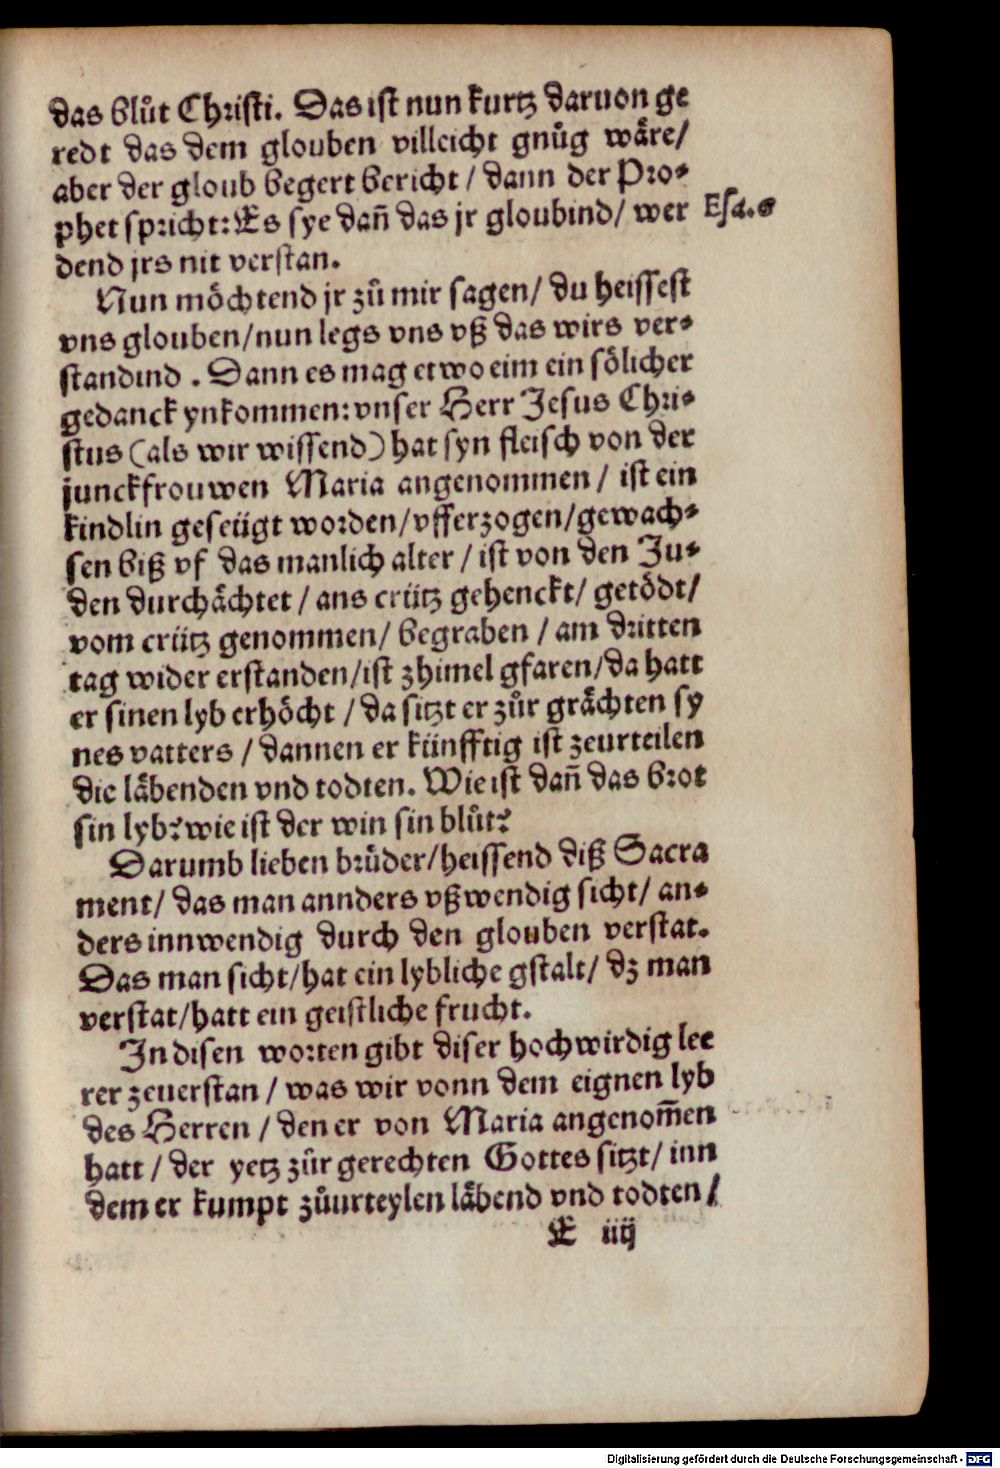 das blůt Christi. Das ist nun kurtz daruon ge
redt das dem glouben villeicht gnůg wäre/
aber der gloub begert bericht / dann der Pro-
phet spricht: Es sye dañ das jr gloubind/ wer
Esa. 6
dend jrs nit verstan.
Nun möchtend jr zů mir sagen/ du heissest
vns glouben/nun legs vns vß das wirs ver-
standind . Dann es mag etwo eim ein sölicher
gedanck ynkommen: vnser Herr Jesus Chri-
stus (als wir wissend) hat syn fleisch von der
junckfrouwen Maria angenommen / ist ein
kindlin geseügt worden/vfferzogen/gewach-
sen biß vf das manlich alter / ist von den Ju-
den durchächtet / ans crütz gehenckt/ getödt/
vom crütz genommen/ begraben / am dritten
tag wider erstanden/ist zhimel gfaren/da hatt
er sinen lyb erhöcht / da sitzt er zůr grächten sy
nes vatters / dannen er künfftig ist zeurteilen
die läbenden vnd todten. Wie ist dañ das brot
sin lyb? wie ist der win sin blůt?
Darumb lieben brůder/heissend diß Sacra
ment/ das man annders vßwendig sicht/ an-
ders innwendig durch den glouben verstat.
Das man sicht/hat ein lybliche gstalt/ dz man
verstat/hatt ein geistliche frucht.
In disen worten gibt diser hochwirdig lee
rer zeuerstan / was wir vonn dem eignen lyb
des Herren / den er von Maria angenom̃en
hatt / der yetz zůr gerechten Gottes sitzt/ inn
dem er kumpt zůurteylen läbend vnd todten/
E iiij
Digitalisierung gefördert durch die Deutsche Forschungsgemeinschaft - DFG